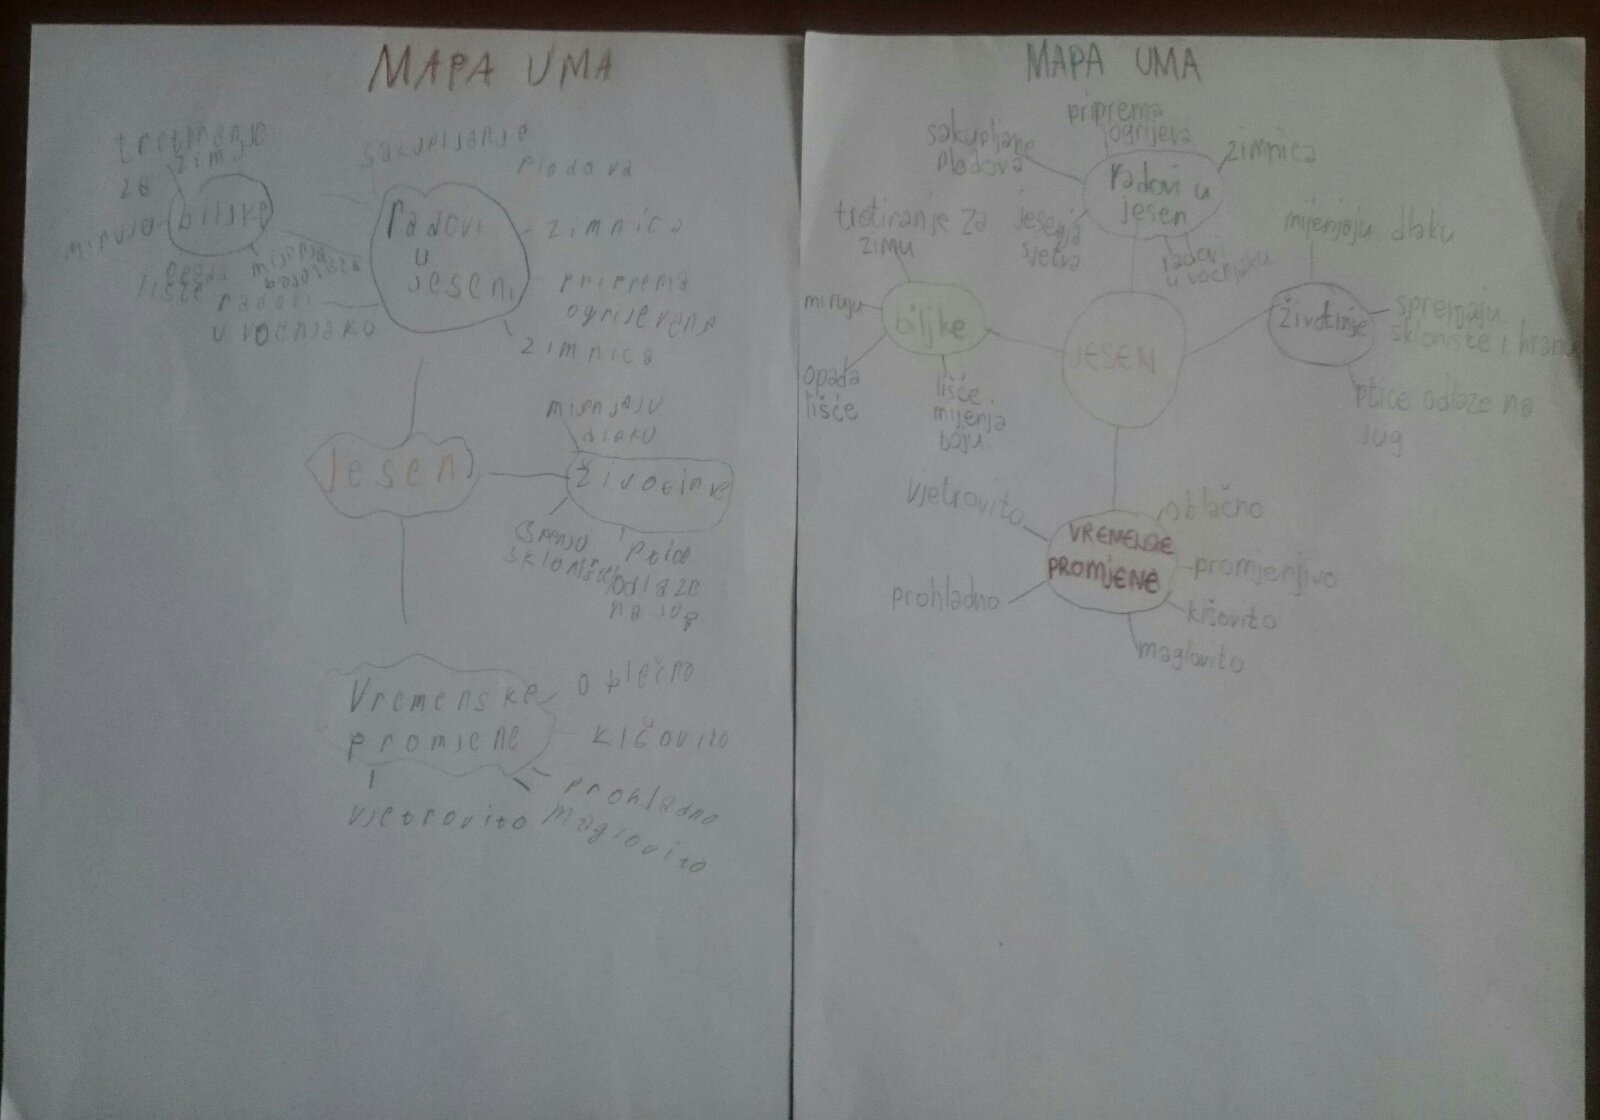 MAPA UMA
sakupljanje
plodova
zimu
za
biljke
radovi
u
jeseni
zimnica
priprema
zimnica
lišće
radovi
mijenjaju
Jesen
ptice
odlaze
na jug
Vremenske
promjene
oblačno
kišovito
prohladno
vjetrovito
maglovito
MAPA UMA
priprema
ogrijeva
sakupljanje
plodova
zimnica
radovi u
jesen
tretiranje za
zimu
jesenja
sjetva
radovi
u voćnjaku
mijenjaju dlaku
miruju
biljke
JESEN
životinje
spremaju
sklonište i hranu
opada
lišće
lišće
mijenja
boju
ptice odlaze na
jug
vjetrovito
oblačno
VREMENSKE
PROMJENE
promjenjivo
prohladno
kišovito
maglovito